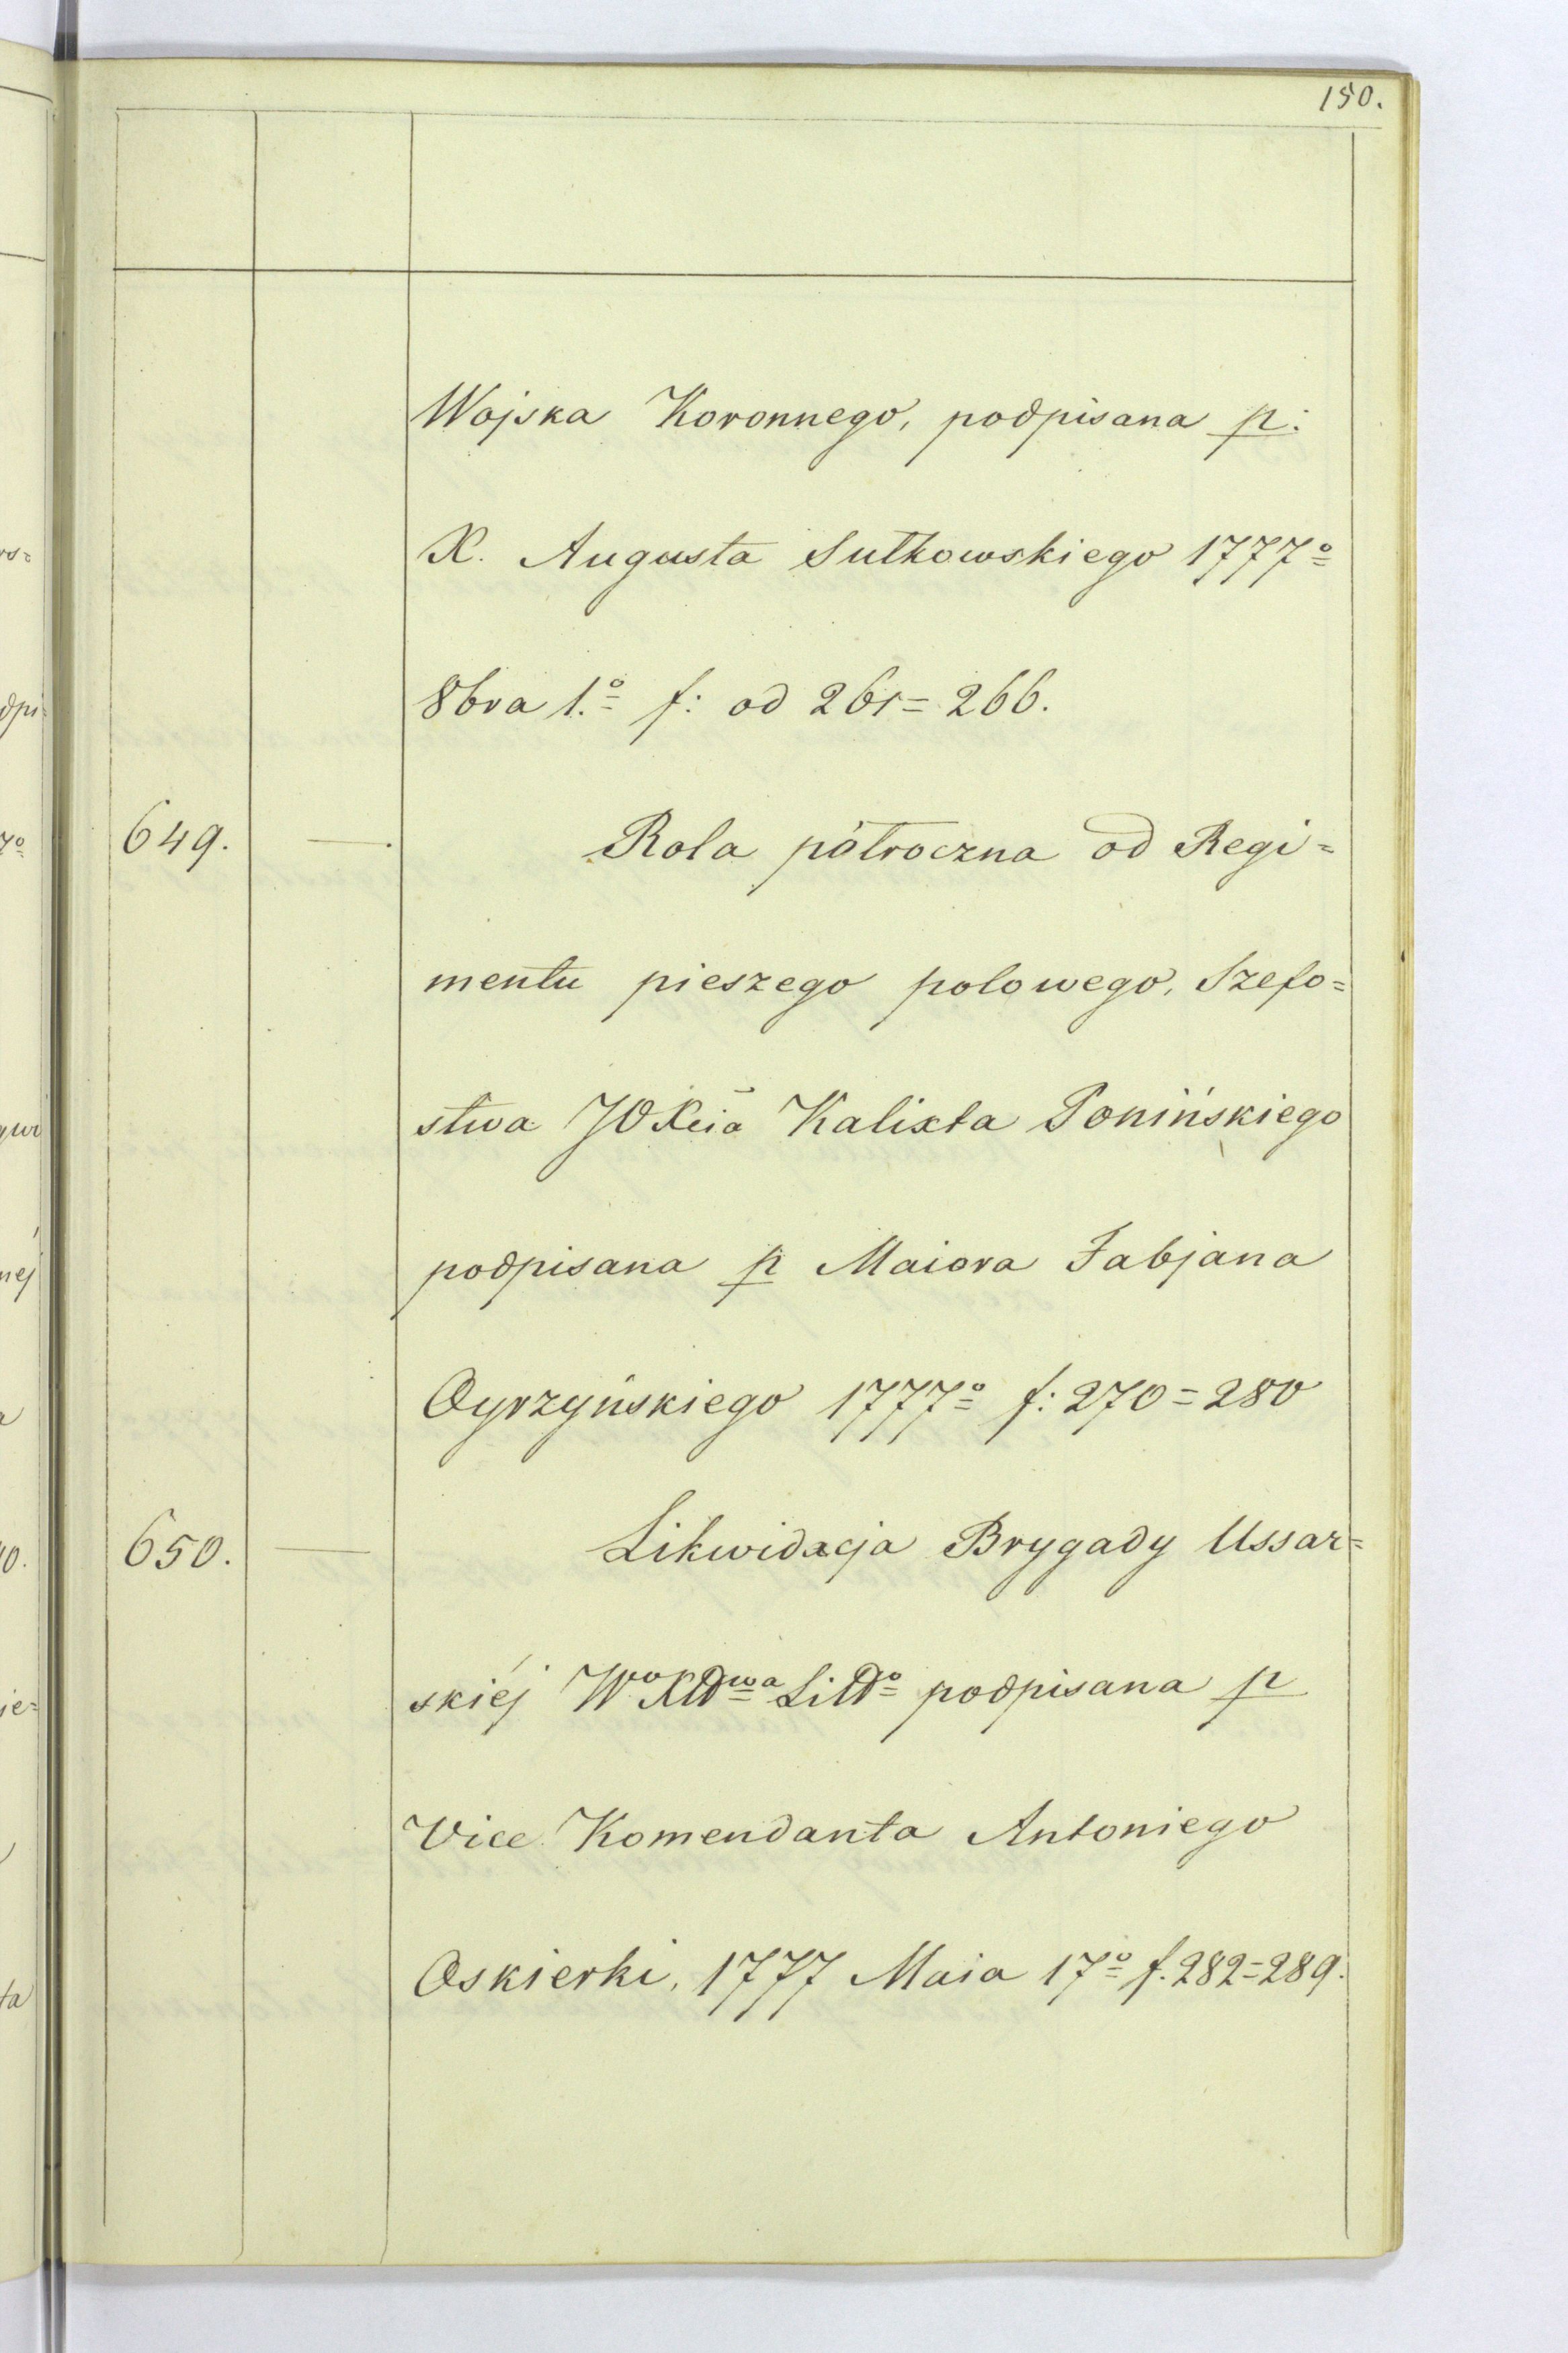 150.
Wojska Koronnego, podpisana p:
X. Augusta Sułkowskiego 1777o
8bra 1.o f: od 261=266.
649. — Rola półroczna od Regi=
mentu pieszego polowego, Szefo=
stwa JO Xcia Kalixta Ponińskiego
podpisana p Maiora Fabjana
Oyrzyńskiego 1777o f: 270=280
650. — Likwidacja Brygady Ussar=
skiéj Wo podpisana p
Vice Komendanta Antoniego
Oskierki, 1777 Maia 17o f. 282=289.